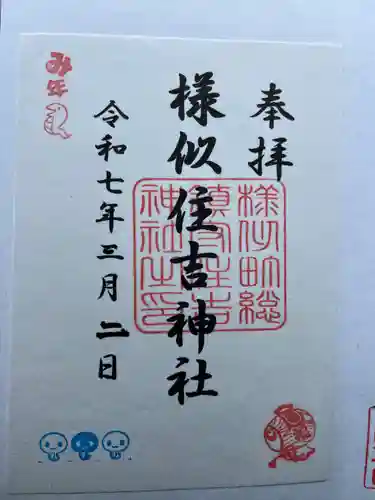 奉拝
様似住吉神社
様似町総
鎮守住吉
神社之印
令和七年三月二日
み年